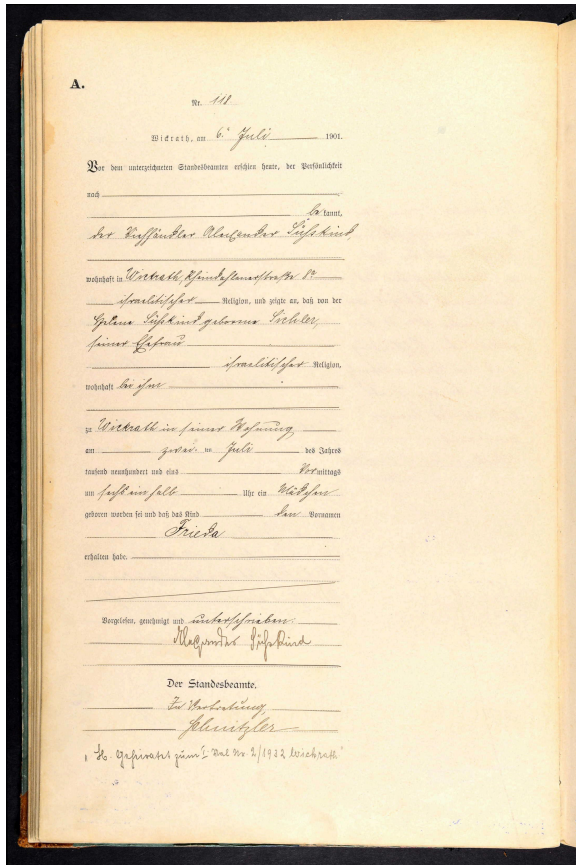 A.
Nr. 118
Wickrath, am 6. Juli 1901.
Vor dem unterzeichneten Standesbeamten erschien heute, der Persönlichkeit
nach
bekannt,
der Viehhändler Alexander Süßkind
wohnhaft in Wickrath, Rheindahlenerstraße
israelitischer Religion, und zeigte an, daß von der
Helene Süßkind geborene
seiner Ehefrau
israelitischer Religion,
wohnhaft bei ihm
zu Wickrath in seiner Wohnung
am zwei ten Juli des Jahres
tausend neunhundert und eins Vormittags
um sechs einhalb Uhr ein Mädchen
geboren worden sei und daß das Kind den Vornamen
Frieda
erhalten habe.
Vorgelesen, genehmigt und unterschrieben:
Alexander Süßkind
Der Standesbeamte.
In Vertretung,
Schnitzler
Geheiratet zum I Mal Nr. 2/1932 Wickrath